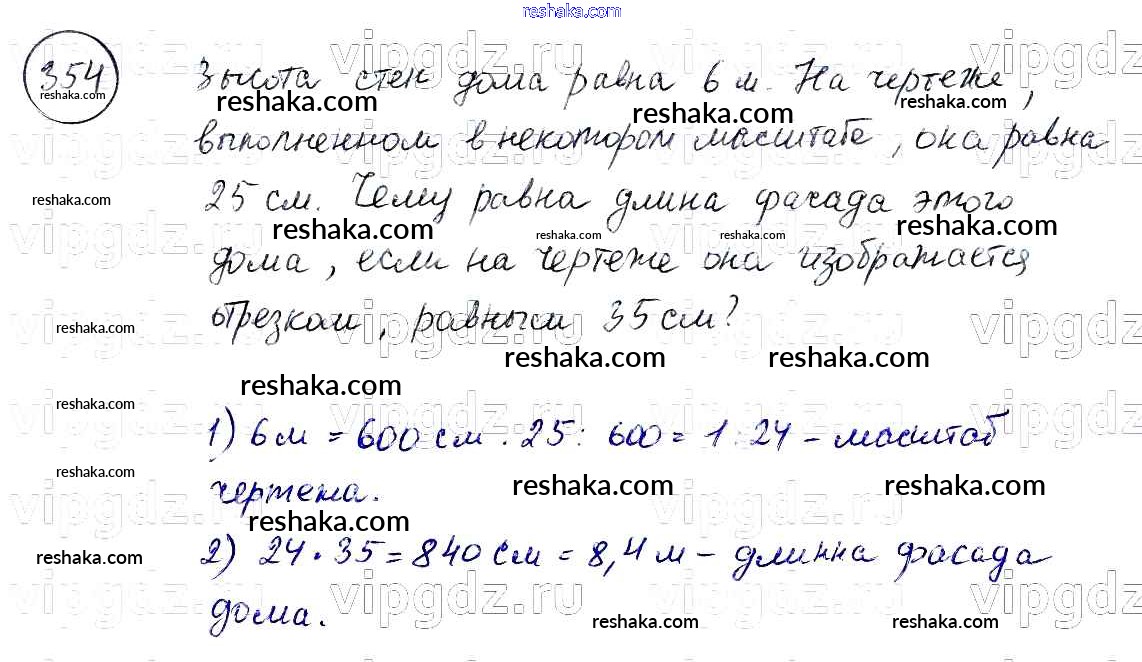 reshaka.com
354
Высота стен дома равна 6 м. На чертеже,
выполненном в некотором масштабе, она равна
25 см. Чему равна длина фасада этого
дома, если на чертеже она изображается
отрезком, равным 35 см?
1) 6 м = 600 см. 25 : 600 = 1 : 24 – масштаб
чертежа.
2) 24 · 35 = 840 см = 8,4 м – длинна фасада
дома.
vipgdz.ru
reshaka.com